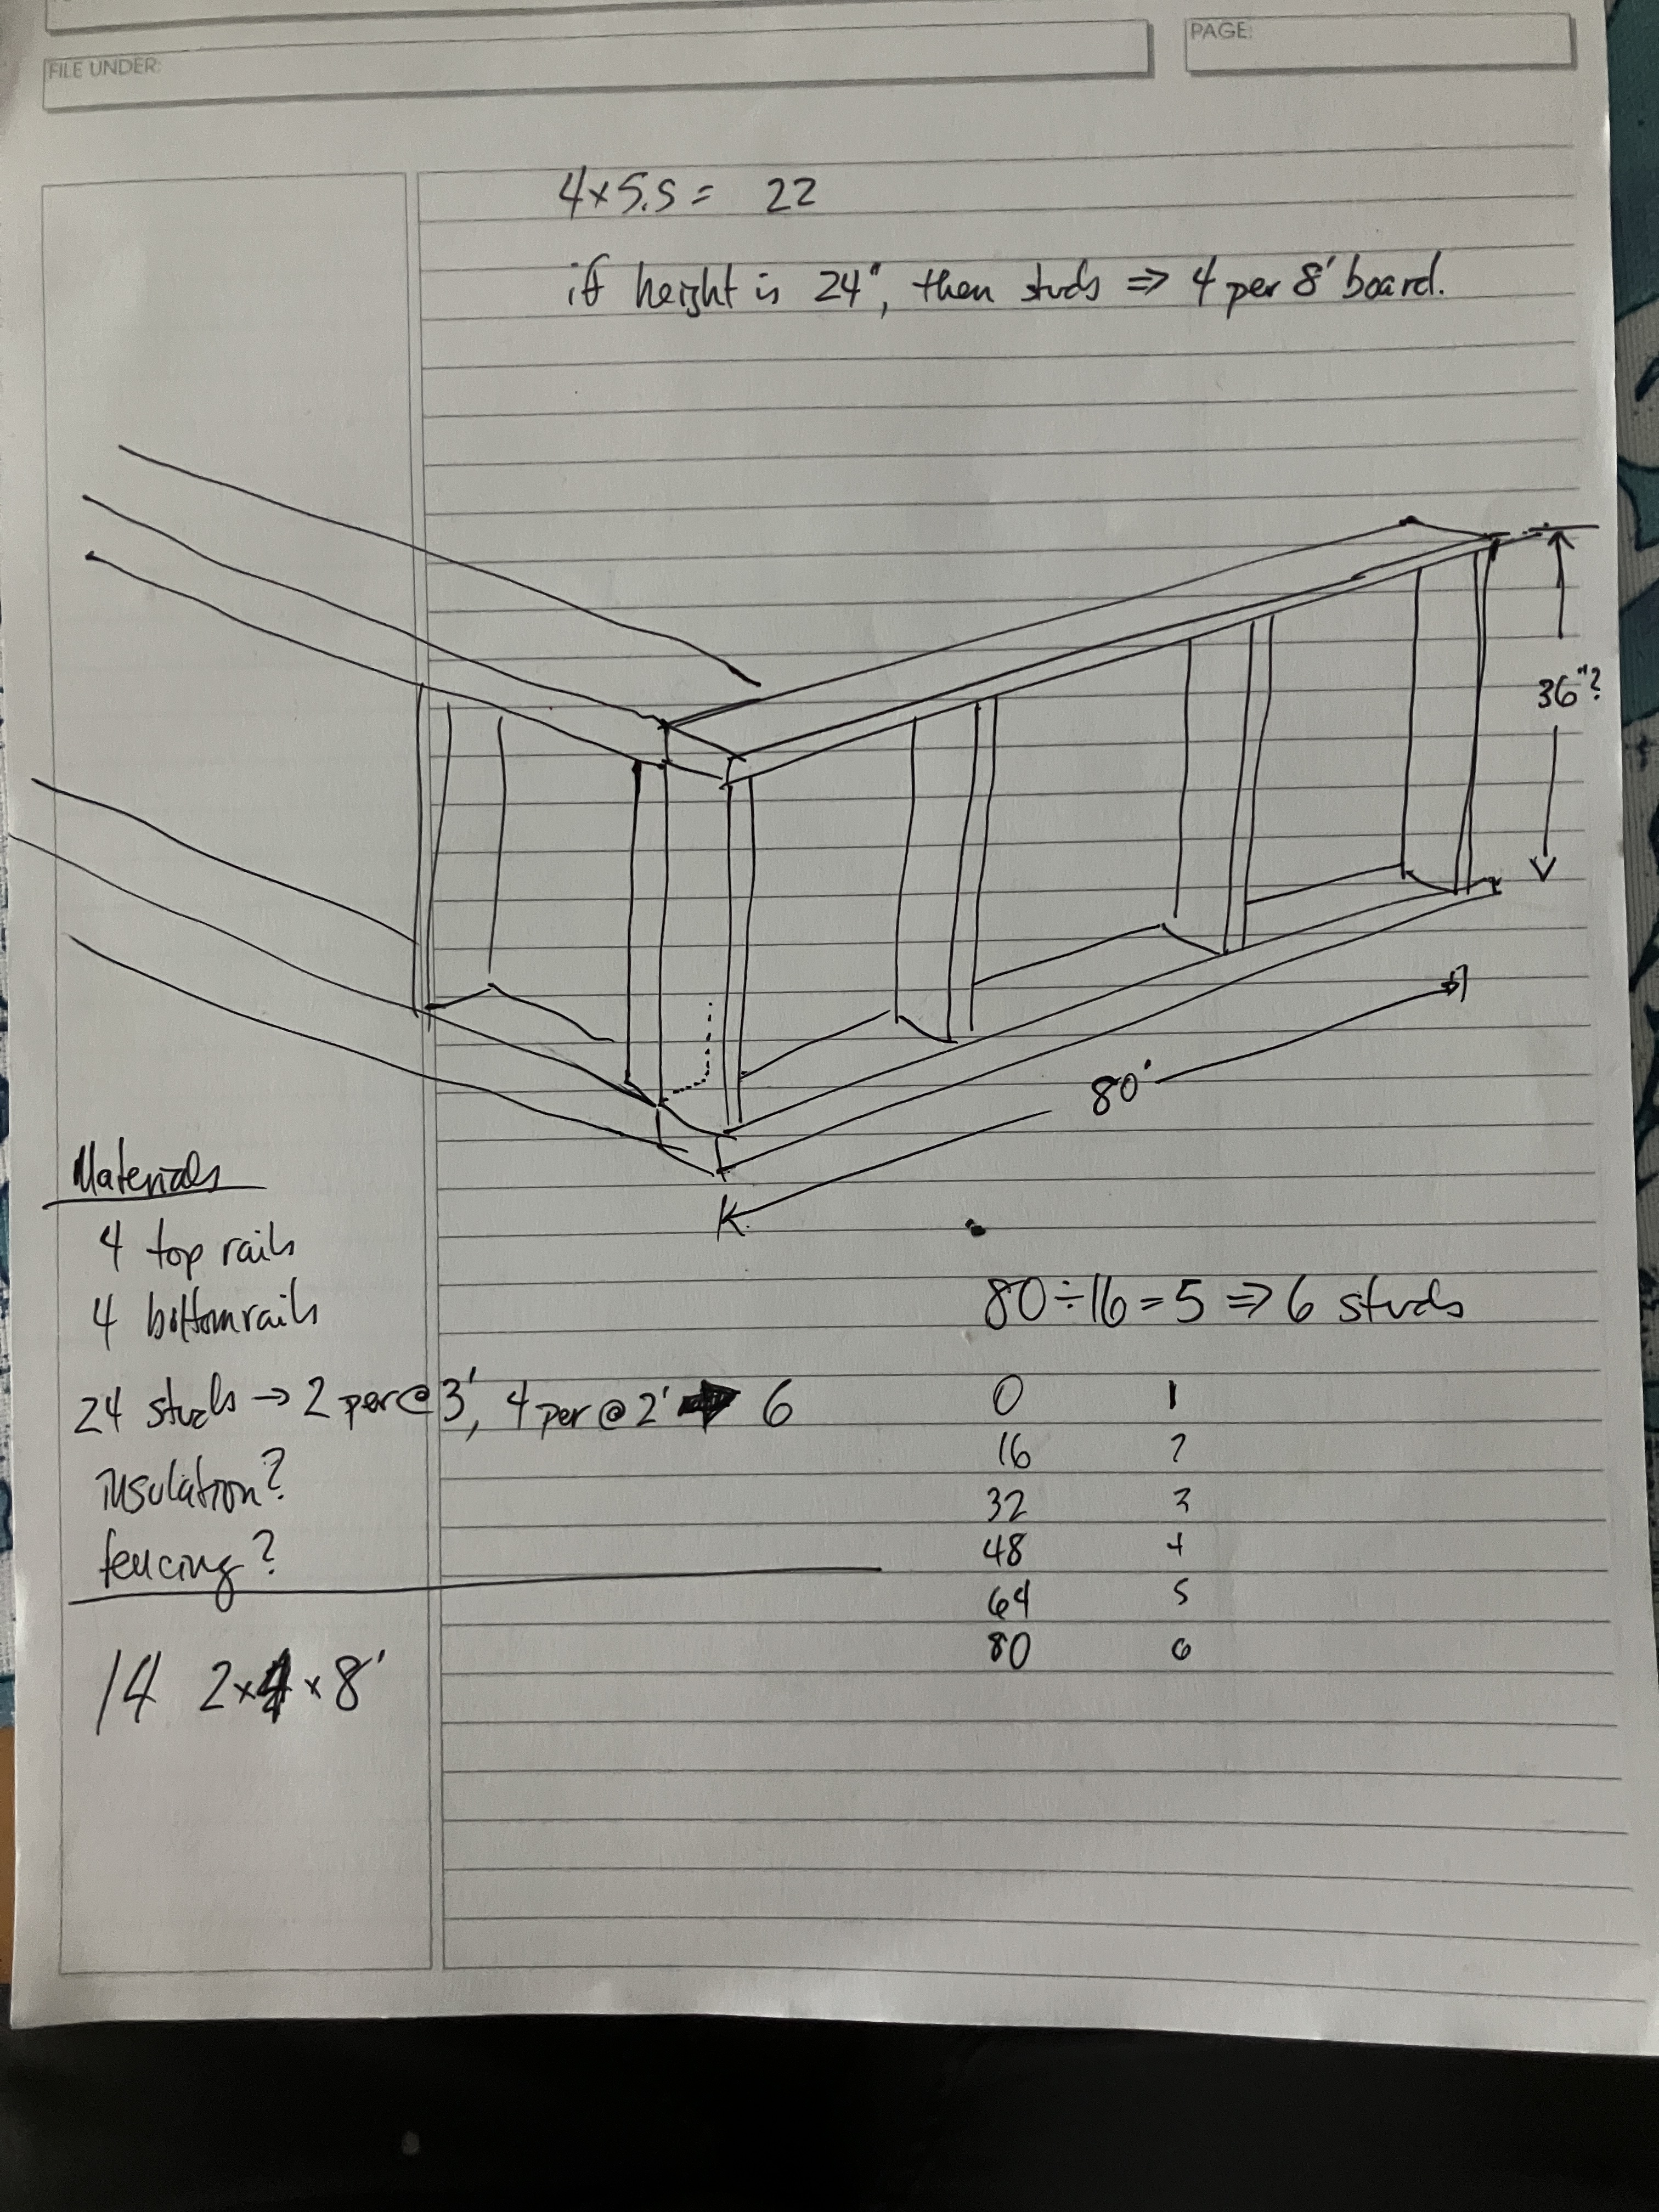 FILE UNDER:
PAGE:
4×5.5 = 22
if height is 24", then studs ⇒ 4 per 8' board.
36"?
80'
Materials
4 top rails
4 bottom rails
24 studs → 2 per @ 3', 4 per @ 2' → 6
insulation?
fencing?
14 2×4×8'
80÷16=5 ⇒ 6 studs
0 1
16 2
32 3
48 4
64 5
80 6